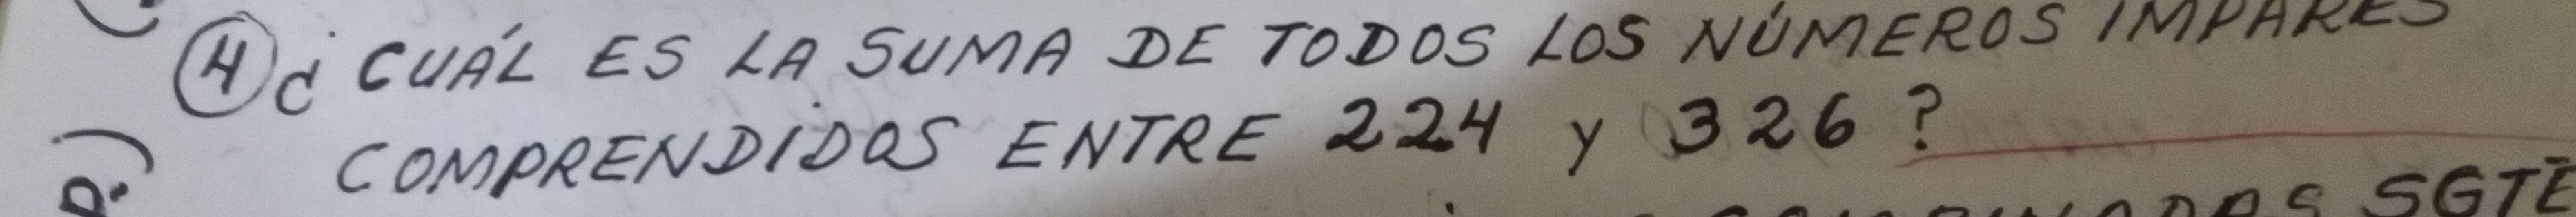 4 ¿CUÁL ES LA SUMA DE TODOS LOS NÚMEROS IMPARES
COMPRENDIDOS ENTRE 224 y 326?
SGTE